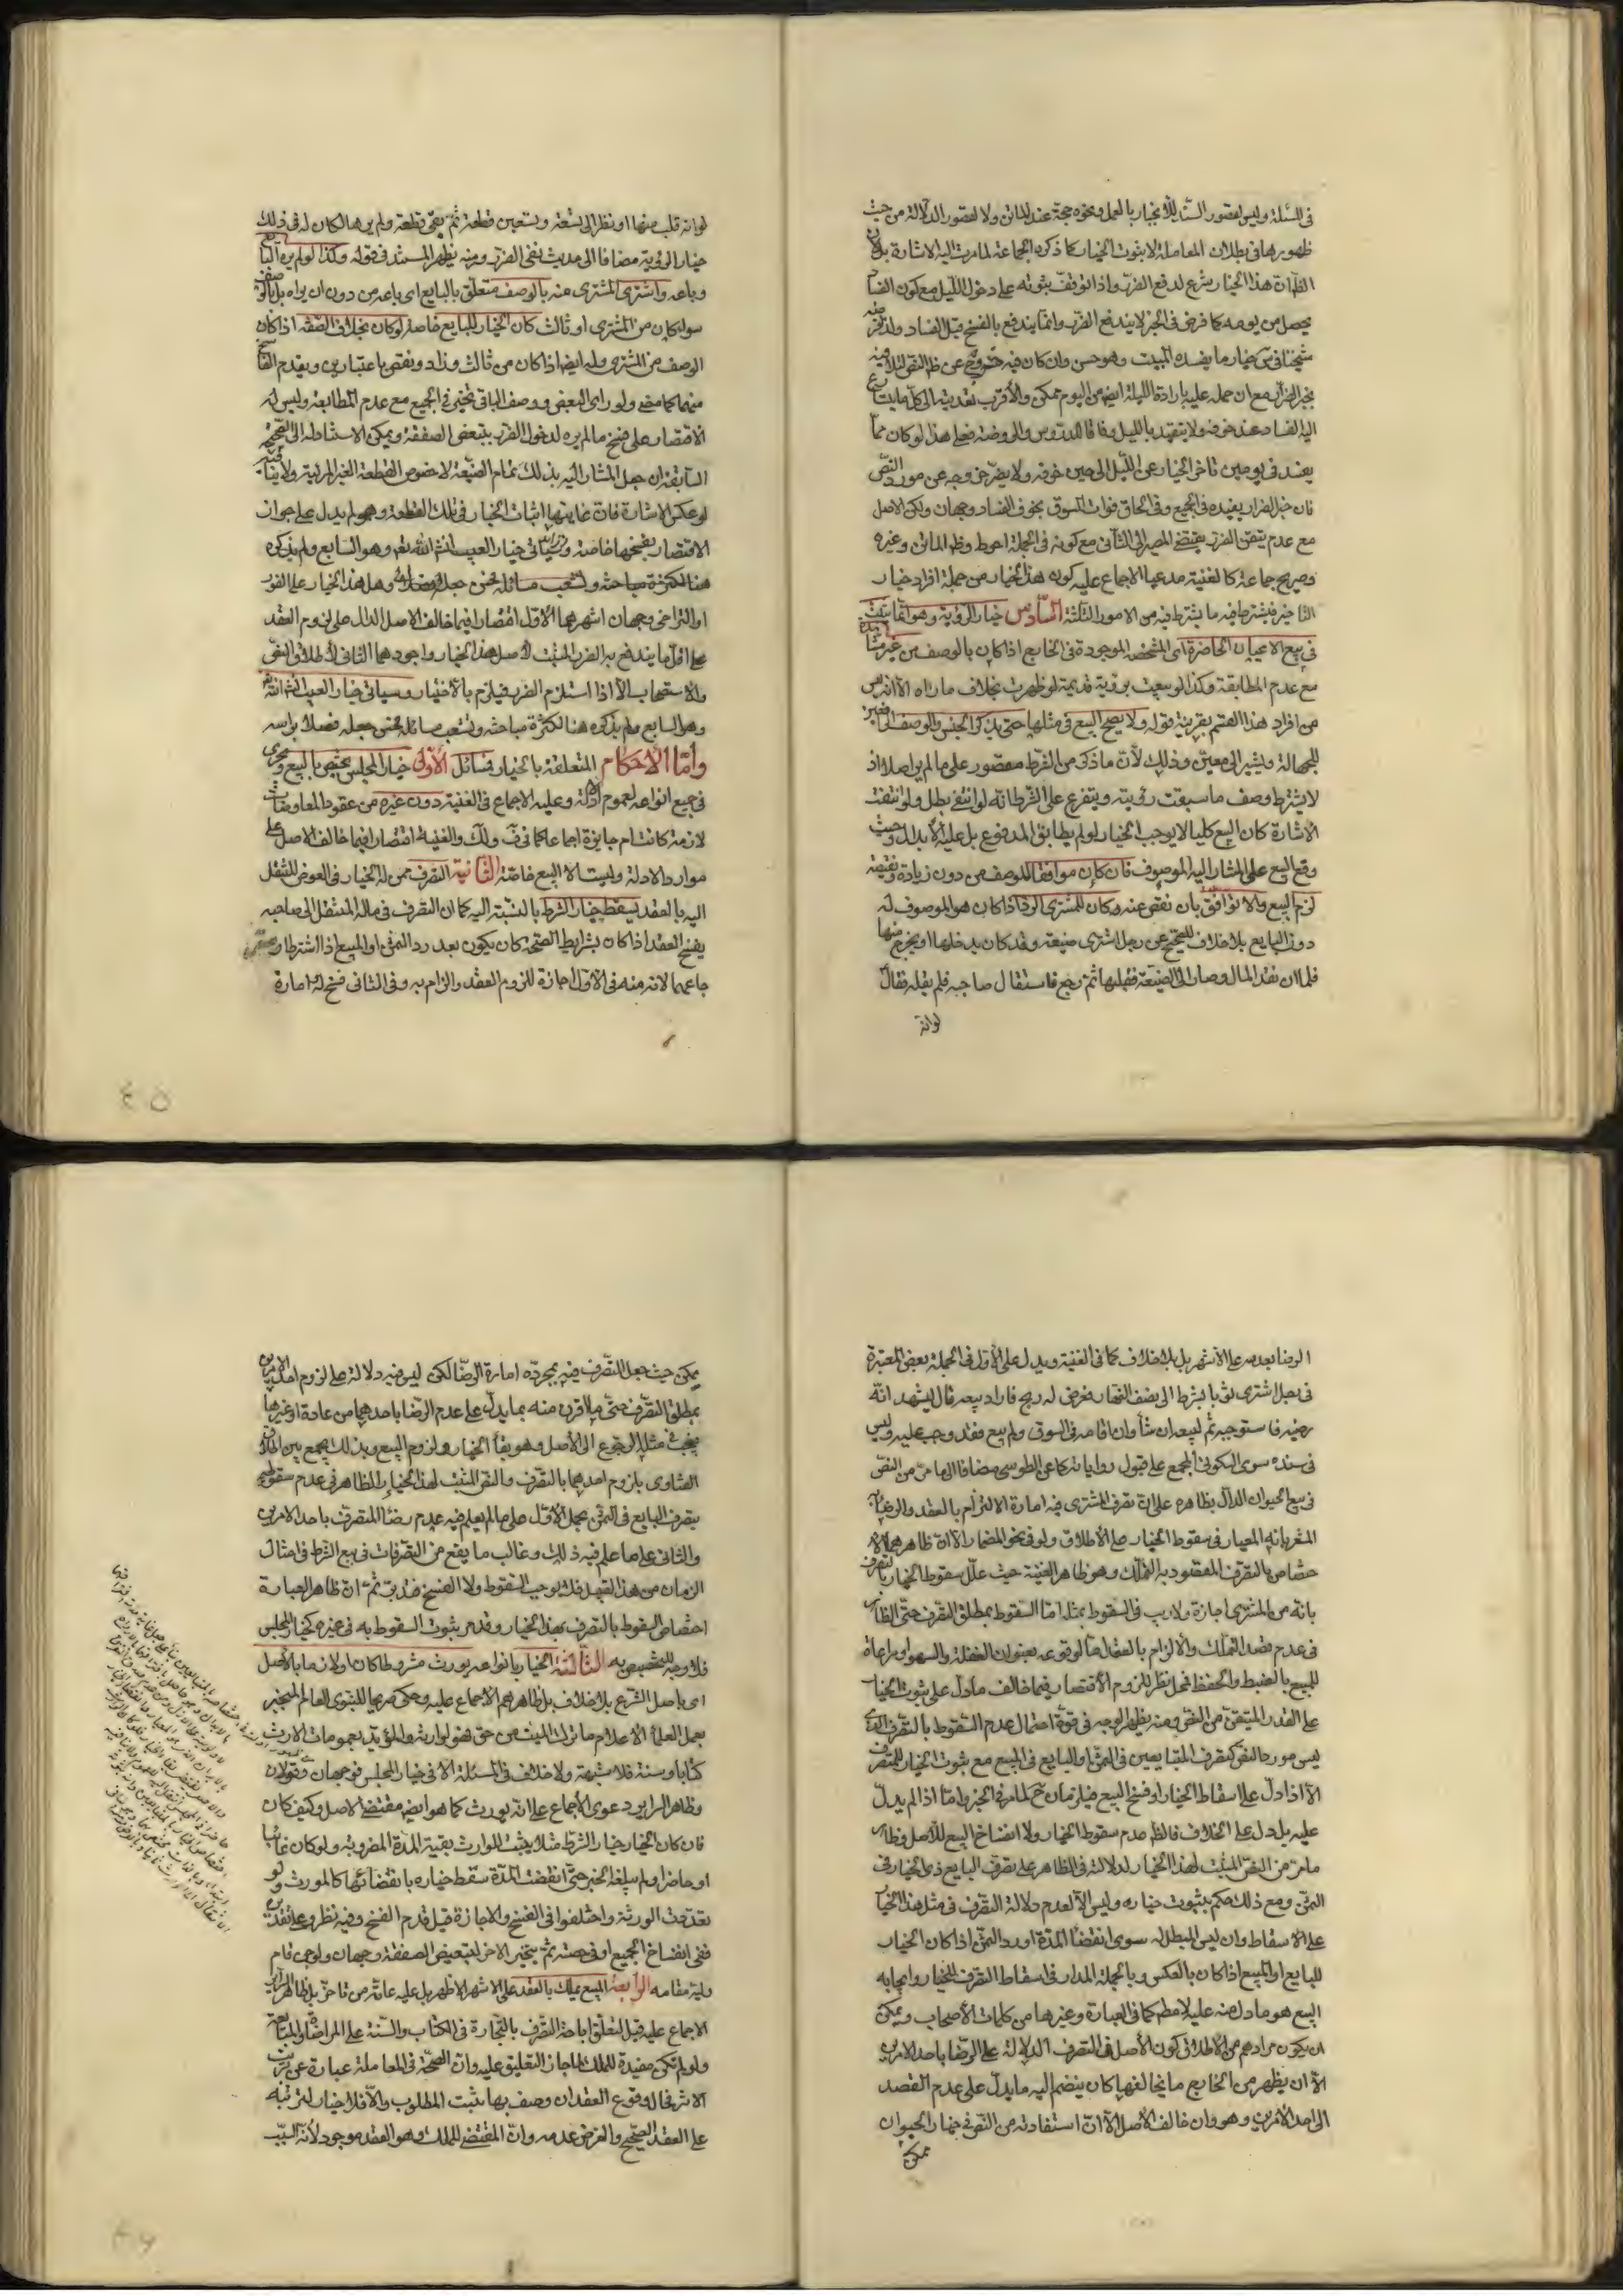 في المسئلة وليس لقصور السند للانجبار بالعمل ونحوه حجة عند الماتن ولا لقصور الدلالة من حيث
ظهورها في بطلان المعاملة لا ثبوت الخيار كما ذكره الجماعة لما مرت اليه الاشارة بل لان
الظاهر ان هذا الخيار شرع لدفع الضرر واذا توقف ثبوته على دخول الليل مع كون الفساد
يحصل من يومه كما فرض في الخبر لا يندفع الضرر وانما يندفع بالفسخ قبل الفساد ولذا فرضه
شيخنا في س خيار ما يفسده المبيت وهو حسن وان كان فيه خروج عن ظ النص لتلافيه
بخبر الضرار مع ان حمله عليه بارادة الليلة ايضا من اليوم ممكن والاقرب تعديته الى كل ما يتسارع
اليه الفساد عند خوفه ولا يتقيد بالليل وفاقا للدروس والروضة فعلى هذا لو كان مما
يفسد في يومين تاخر الخيار عن الليل الى حين خوفه ولا يضر خروجه عن مورد النص
فان خبر الضرار يفيده في الجميع وفي الحاق فوات السوق بخوف الفساد وجهان ولكن الاصل
مع عدم تيقن الضرر يقتضي المصير الى الثاني مع كونه في الجملة احوط وظ الماتن وغيره
وصريح جماعة كالغنية مدعيا الاجماع عليه كون هذا الخيار من جملة افراد خيار
التاخير فيشترط فيه ما يشترط فيه من الامور الثلثة السادس خيار الرؤية وهو انما يثبت
في بيع الاعيان الحاضرة اى المشخصة الموجودة في الخارج اذا كان بالوصف من غير مشاهدة
مع عدم المطابقة وكذا لو بيعت برؤية قديمة لو ظهرت بخلاف ما راه الا انه ليس
من افراد هذا القسم بقرينة قوله ولا يصح البيع في مثلها حتى يذكر الجنس والوصف الرافعين
للجهالة ويشير الى معين وذلك لان ما ذكر من الشرط مقصور على ما لم ير اصلا اذ
لا يشترط وصف ما سبقت رؤيته ويتفرع على الشرط انه لو انتفى بطل ولو انتفت
الاشارة كان البيع كليا لا يوجب الخيار لو لم يطابق المدفوع بل عليه الابدال وحيث
وقع البيع على المشار اليه الموصوف فان كان موافقا للوصف من دون زيادة ونقيصة
لزم البيع والا توافق بان نقص عنه كان للمشتري الرد اذا كان هو الموصوف له
دون البايع بلا خلاف للصحيح عن رجل اشترى ضيعة وقد كان يدخلها ويخرج منها
فلما ان نقد المال وصار الى الضيعة فقلبها ثم رجع فاستقال صاحبه فلم يقله فقال
لو انه
لو انه قلب منها او نظر الى تسعة وتسعين قطعة ثم بقى قطعة ولم يرها لكان له في ذلك
خيار الرؤية مضافا الى حديث نفي الضرر ومنه يظهر المستند في قوله وكذا لو لم يره البايع
وباعه واشترى المشترى منه بالوصف متعلق بالبايع اى باعه من دون ان يراه بل بالوصف
سواء كان من المشترى او ثالث كان الخيار للبايع خاصة لو كان بخلاف الصفة اذا كان
الوصف من المشترى وله ايضا اذا كان من ثالث وزاد ونقص باعتبارين ويقدم الفاسخ
منهما كما مضى ولو راى البعض ووصف الباقي تخير في الجميع مع عدم المطابقة وليس له
الاقتصار على فسخ ما لم يره لدخول الضرر بتبعض الصفقة ويمكن الاستناد له الى الصحيحة
السابقة ان جعل المشار اليه بذلك تمام الضيعة لا خصوص القطعة الغير المرئية ولا ينافيه
لو عكس الاشارة فان غايتها اثبات الخيار في تلك القطعة وهو لم يدل على جواز
الاقتصار بفسخها خاصة وسياتي خيار العيب انشاء الله تعالى وهو السابع ولم يذكره
هنا لكثرة مباحثه وتشعب مسائله فحسن جعله فصلا وهل هذا الخيار على الفور
او التراخي وجهان اشهرهما الاول اقتصارا فيما خالف الاصل الدال على لزوم العقد
على اقل ما يندفع به الضرر المثبت لاصل هذا الخيار واجودهما الثاني لاطلاق النص
والاستصحاب الا اذا استلزم الضرر فيلزم بالاختيار وسياتي خيار العيب انشاء الله
وهو السابع ولم يذكره هنا لكثرة مباحثه وتشعب مسائله فحسن جعله فصلا براسه
واما الاحكام المتعلقة بالخيار فمسائل الاولى خيار المجلس يختص بالبيع ويجرى
في جميع انواعه لعموم ادلته وعليه الاجماع في الغنية دون غيره من عقود المعاوضات
لازمة كانت ام جايزة اجماعا كما في ف ولك والغنية اقتصارا فيما خالف الاصل على
موارد الادلة وليست الا البيع خاصة الثانية التصرف ممن له الخيار في العوض المنتقل
اليه بالعقد يسقط خيار الشرط بالنسبة اليه كما ان التصرف في ماله المنتقل الى صاحبه
يفسخ العقد اذا كان بشرايط الصحة كان يكون بعد رد الثمن او المبيع اذا اشترطا
جاعهما لانه منه في الاول اجازة للزوم العقد والزام به وفي الثاني فسخ له امارة
٤٥
الرضا بعدمه على الاشهر بل بلا خلاف كما في الغنية ويدل على الاول في الجملة بعض المعتبرة
في رجل اشترى ثوبا بشرط الى نصف النهار فعرض له ربح فاراد بيعه قال ليشهد انه
رضيه فاستوجبه ثم ليبعه ان شاء وان اقامه في السوق ولم يبع فقد وجب عليه وليس
في سنده سوى السكوني المجمع على قبول رواياته كما عن الطوسي مضافا الى ما مر من النص
في بيع الحيوان الدال بظاهره على ان تصرف المشترى فيه امارة الالتزام بالعقد والرضا به
المشعر بانه المعيار في سقوط الخيار على الاطلاق ولو في نحو المضمار الا ان ظاهرهما الا
ختصاص بالتصرف المقصود به التملك وهو ظاهر الغنية حيث علل سقوط الخيار بالتصرف
بانه من المشترى اجازة ولا ريب في السقوط بمثله اما السقوط بمطلق التصرف حتى الظاهر
في عدم قصد التملك والالزام بالعقد اما لوقوعه بعنوان الغفلة والسهو او مراعاة
للمبيع بالضبط والحفظ فمحل نظر للزوم الاقتصار فيما خالف ما دل على ثبوت الخيار
على القدر المتيقن من النص ومنه يظهر الوجه في قوة احتمال عدم السقوط بالتصرف الذى
ليس مورد النص كتصرف المتبايعين في الثمن والبايع في المبيع مع ثبوت الخيار للمتصرف
الا اذا دل على اسقاط الخيار او فسخ البيع فيلزمان ح لما مر في الخبر واما اذا لم يدل
عليه بل دل على الخلاف فالظ عدم سقوط الخيار ولا انفساخ البيع للاصل وظاهر
ما مر من النص المثبت لهذا الخيار لدلالته في الظاهر على تصرف البايع ذى الخيار في
الثمن ومع ذلك حكم بثبوت خياره وليس الا لعدم دلالة التصرف في مثل هذا الخيار
على الاسقاط وان ليس المبطل له سوى انقضاء المدة او رد الثمن اذا كان الخيار
للبايع او المبيع اذا كان بالعكس وبالجملة المدار في اسقاط التصرف للخيار وايجابه
البيع هو ما دل منه عليه لا مطلقا كما في العبارة وغيرها من كلمات الاصحاب ويمكن
ان يكون مرادهم من الاطلاق كون الاصل في التصرف الدلالة على الرضا باحد الامرين
الا ان يظهر من الخارج ما يخالفها كان ينضم اليه ما يدل على عدم القصد
الى احد الامرين وهو وان خالف الاصل الا ان استفادته من النص في خيار الحيوان
ممكن
ممكن حيث جعل التصرف فيه بمجرده امارة الرضا لكن ليس فيه دلالة على لزوم احد الامرين
بمطلق التصرف حتى ما اقترن منه بما يدل على عدم الرضا باحدهما من عادة او غيرها
فيجب في مثله الرجوع الى الاصل وهو بقاء الخيار ولزوم البيع وبذلك يجمع بين اطلاق
الفتاوى بلزوم احدهما بالتصرف والنص المثبت لهذا الخيار الظاهر في عدم سقوطه
بتصرف البايع في الثمن بحمل الاول على ما لم يعلم فيه عدم رضا المتصرف باحد الامرين
والثاني على ما علم فيه ذلك وغالب ما يقع من التصرفات في بيع الشرط في امثال
الزمان من هذا القبيل فلا يوجب السقوط ولا الفسخ فتدبر ثم ان ظاهر العبارة
اختصاص السقوط بالتصرف بهذا الخيار وقد مر ثبوت السقوط به في غيره كخيار المجلس
فلا وجه للتخصيص به الثالثة الخيار بانواعه يورث مشروطا كان او لازما بالاصل
اى باصل الشرع بلا خلاف بل ظاهرهم الاجماع عليه وحكى صريحا للنبوى العام المنجبر
بعمل العلماء الاعلام ما ترك الميت من حق فهو لوارثه والمؤيد بعمومات الارث
كتابا وسنة فلا شبهة ولا خلاف في المسئلة الا في خيار المجلس فوجهان وقولان
وظاهر السرائر دعوى الاجماع على انه يورث كما هو ايضا مقتضى الاصل وكيف كان
فان كان الخيار خيار الشرط مثلا يثبت للوارث بقية المدة المضروبة ولو كان غائبا
او حاضرا ولم يبلغه الخبر حتى انقضت المدة سقط خياره بانقضائها كالمورث ولو
تعددت الورثة واختلفوا في الفسخ والاجازة قيل قدم الفسخ وفيه نظر وعلى تقديره
ففي انفساخ الجميع او في حصته ثم يتخير الاخر لتبعيض الصفقة وجهان ولو جن قام
وليه مقامه الرابعة المبيع يملك بالعقد على الاشهر الاظهر بل عليه عامة من تاخر بل ظاهر السرائر
الاجماع عليه قيل لتعلق اباحة التصرف بالتجارة في الكتاب والسنة على المراضاة والمبايعة
ولو لم تكن مفيدة للملك لما جاز التعليق عليه وان الصحة في المعاملة عبارة عن ترتب
الاثر فحال وقوع العقد ان وصف بها ثبت المطلوب والا فلا خيار لترتبه
على العقد الصحيح والفرض عدمه وان المقتضى للملك وهو العقد موجود لانه السبب
٤٦